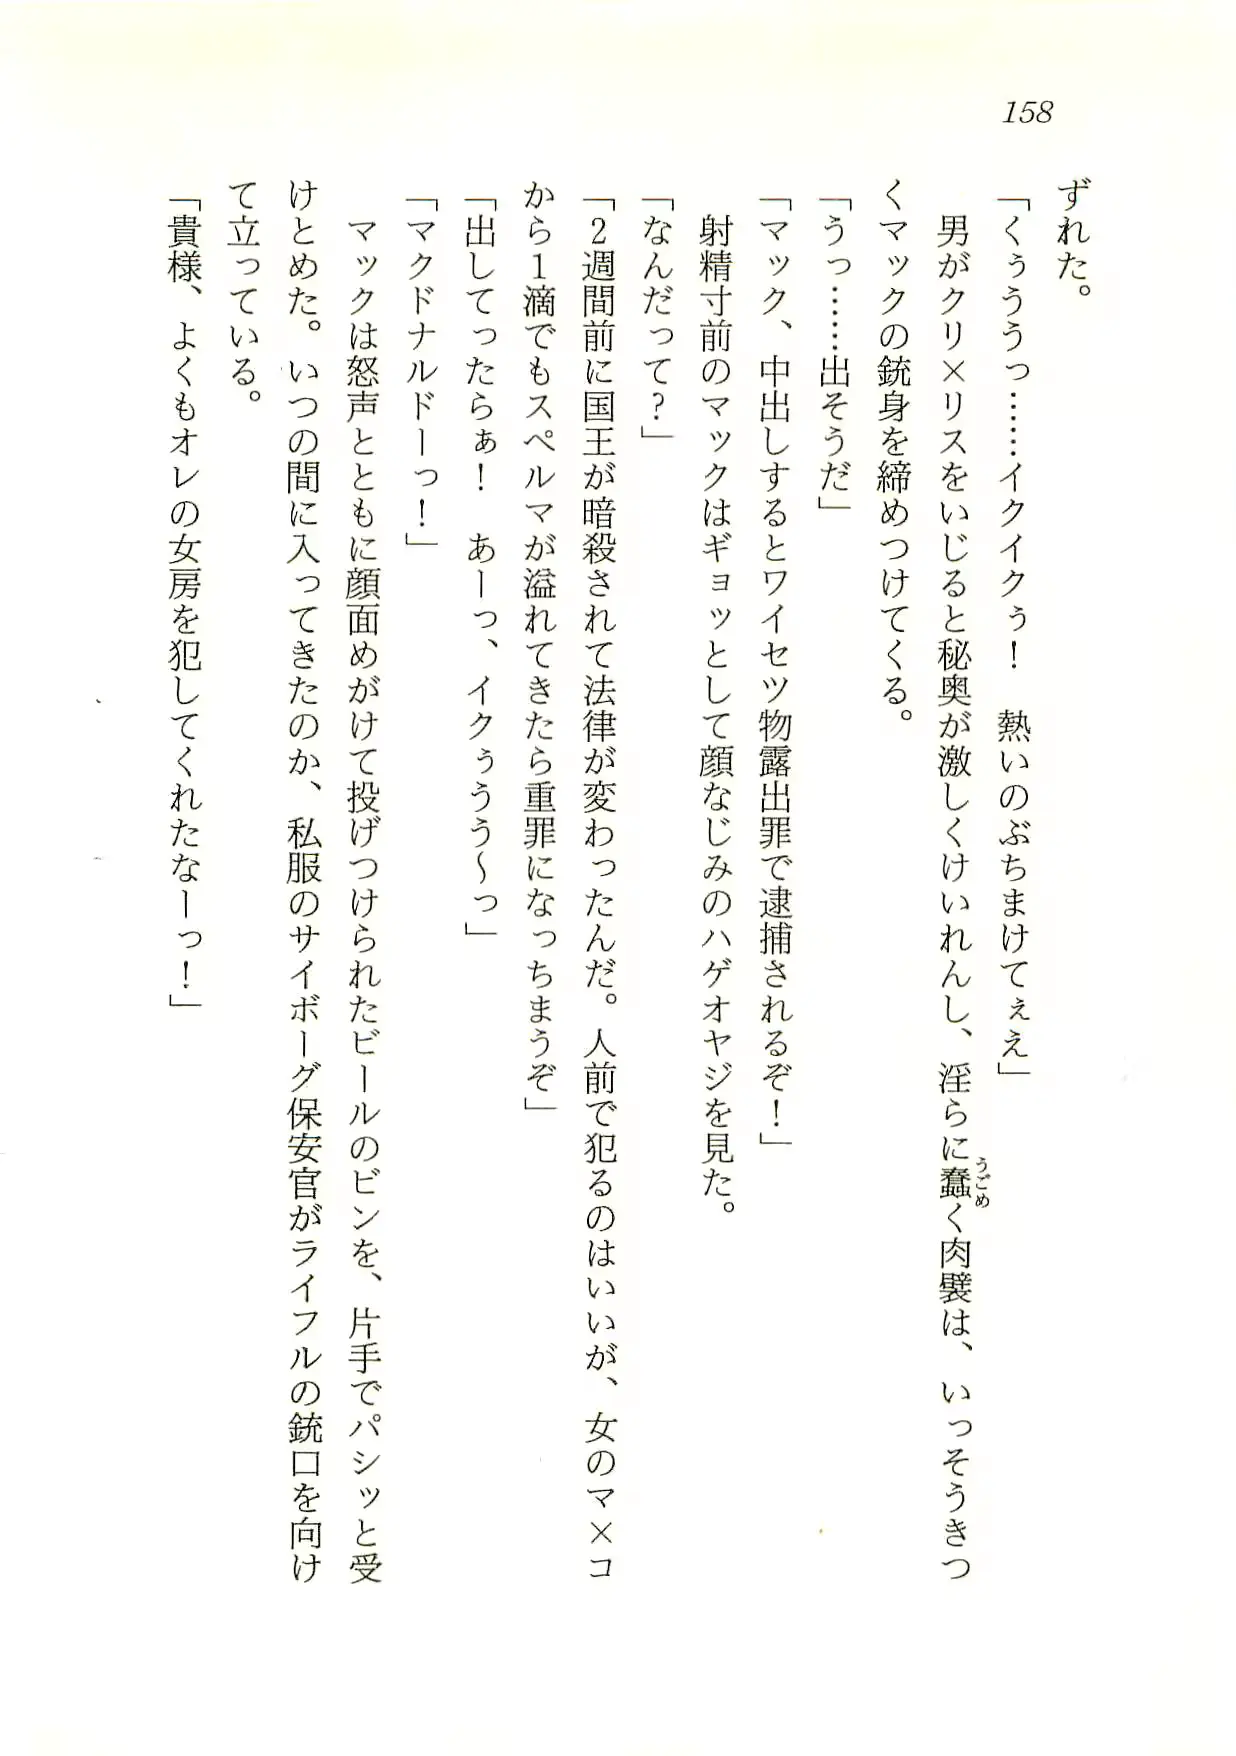 158
ずれた。
「くぅううっ……イクイクぅ！　熱いのぶちまけてぇえ」
　男がクリ×リスをいじると秘奥が激しくけいれんし、淫らに蠢く肉襞は、いっそうきつ
うごめ
くマックの銃身を締めつけてくる。
「うっ……出そうだ」
「マック、中出しするとワイセツ物露出罪で逮捕されるぞ！」
　射精寸前のマックはギョッとして顔なじみのハゲオヤジを見た。
「なんだって？」
「2週間前に国王が暗殺されて法律が変わったんだ。人前で犯るのはいいが、女のマ×コ
から1滴でもスペルマが溢れてきたら重罪になっちまうぞ」
「出してったらぁ！　あーっ、イクぅうう～っ」
「マクドナルドーっ！」
　マックは怒声とともに顔面めがけて投げつけられたビールのビンを、片手でパシッと受
けとめた。いつの間に入ってきたのか、私服のサイボーグ保安官がライフルの銃口を向け
て立っている。
「貴様、よくもオレの女房を犯してくれたなーっ！」